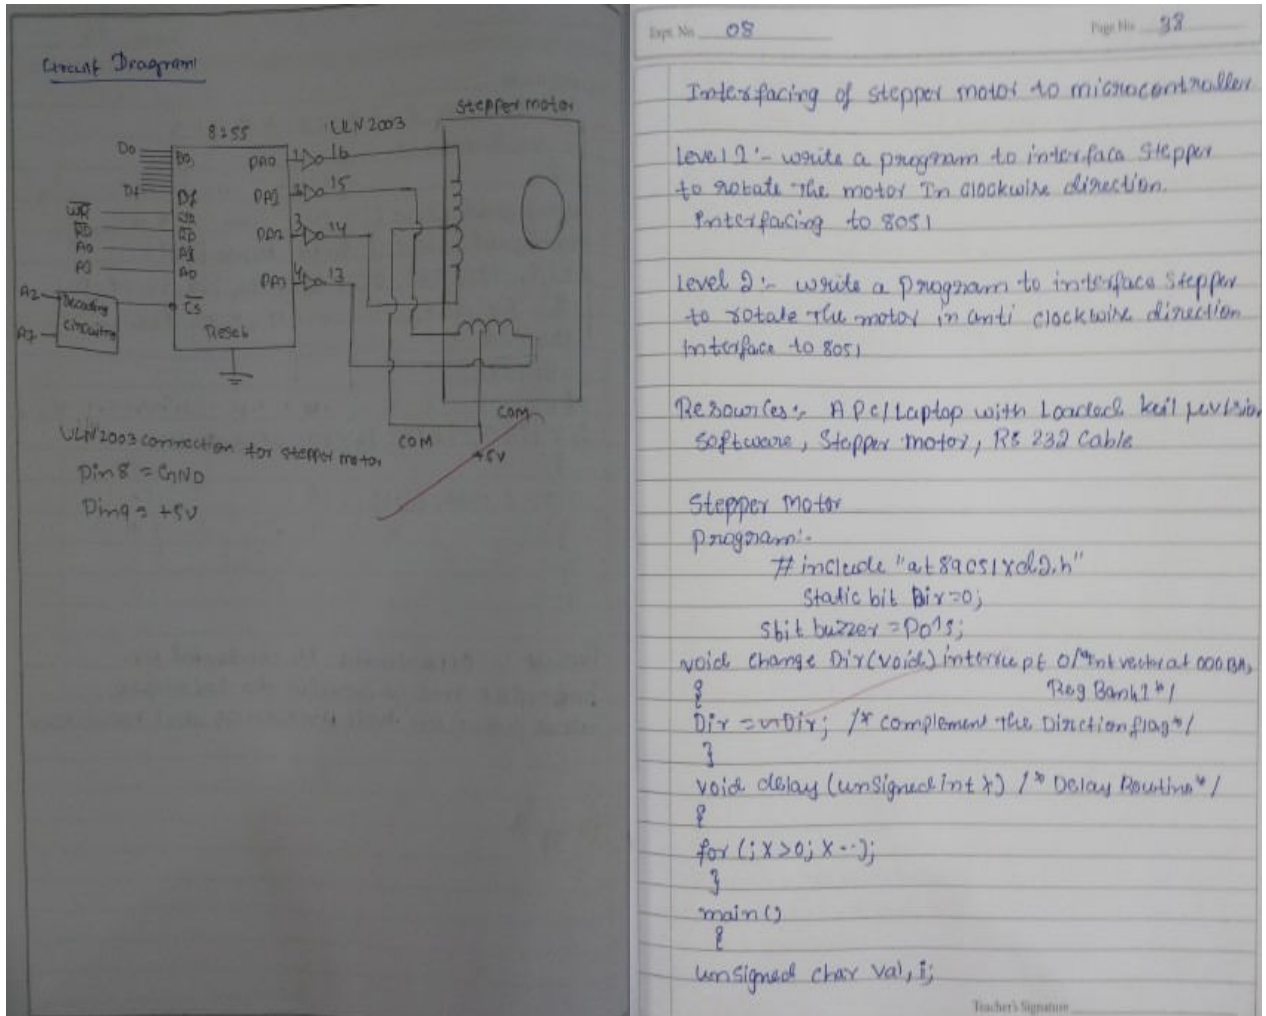 Circuit Diagram
stepper motor
8255
ULN2003
D0
D0
PA0
1
16
D7
D7
PA1
2
15
WR
WR
RD
RD
PA2
3
14
A0
A1
A1
A0
PA3
4
13
A2
Decoding
CS
circuitry
A7
Reset
COM
COM
+5V
ULN2003 connection for stepper motor
Pin 8 = GND
Pin 9 = +5V
Expt. No. 08
Page No. 38
Interfacing of stepper motor to microcontroller
Level 1:- write a program to interface Stepper
to rotate The motor In clockwise direction.
Interfacing to 8051
Level 2:- write a program to interface Stepper
to rotate The motor in anti clockwise direction
Interface to 8051
Resources:- A PC/Laptop with Loaded keil μvision
software, Stepper motor, RS 232 Cable
Stepper Motor
program:-
#include "at89c51xd2.h"
Static bit Dir=0;
sbit buzzer = P0^5;
void change Dir(void) interrupt 0/*Int vector at 000BH,
{ Reg Bank1*/
Dir = ~Dir; /* complement the Direction flag*/
}
void delay (unsigned int x) /* Delay Routine*/
{
for (; x>0; x--);
}
main()
{
unsigned char val, i;
Teacher's Signature